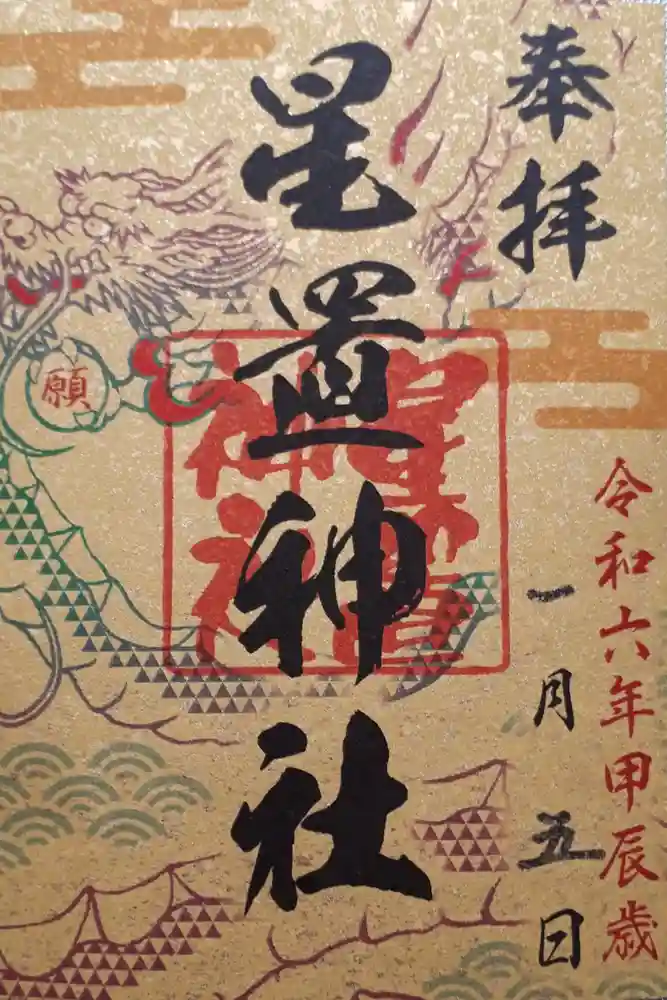 奉拝
令和六年甲辰歳
一月五日
星置神社
星置神社
願